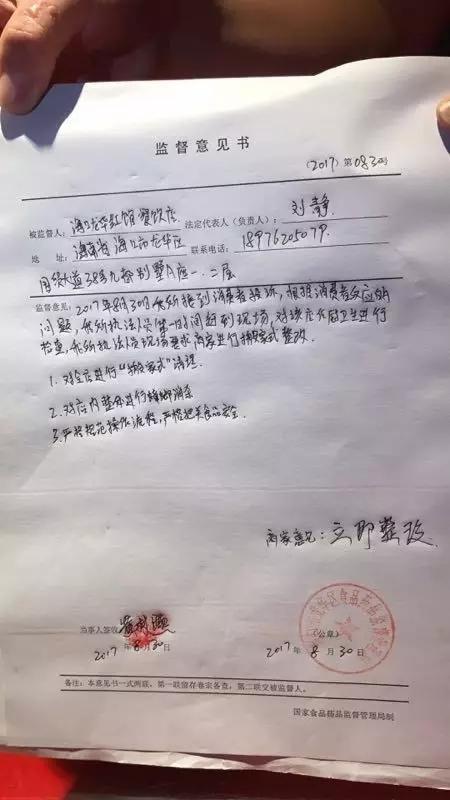 监督意见书
(2017)第083号
被监督人：海口龙华红馆餐饮店 法定代表人（负责人）：刘静
地 址：海南省海口市龙华区 联系电话：18976205079.
38号九都别墅A座一.二层
监督意见：2017年8月30日我所接到消费者投诉，根据消费者反应的
问题，我所执法人员第一时间赶到现场，对该店后厨卫生进行
检查，我所执法人员现场要求商家进行搬家式整改.
1. 对全店进行“搬家式”清理.
2. 对店内整体进行蟑螂消杀.
3. 严格规范操作流程，严格把关食品安全.
商家意见：立即整改.
当事人签收
（公章）
2017年8月30日 2017年8月30日
备注：本意见书一式两联，第一联留存卷宗备查，第二联交被监督人。
国家食品药品监督管理局制